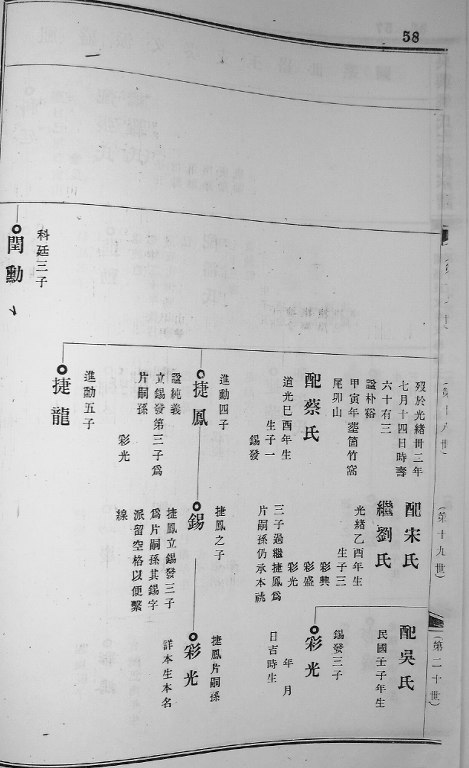 58
(第十八世)
歿於光緒卅二年
七月十四日時壽
六十有三
諡朴裕
甲寅年塟箇竹窩
尾卯山
配蔡氏
道光巳酉年生
生子一
錫發
進勳四子
捷鳳
諡純義
立錫發第三子爲
片嗣孫
彩光
進勳五子
捷龍
科廷三子
閏勳
(第十九世)
配宋氏
繼劉氏
光緒乙酉年生
生子三
彩興
彩盛
彩光
三子過繼捷鳳爲
片嗣孫仍承本祧
捷鳳之子
錫
捷鳳立錫發三子
爲片嗣孫其錫字
派留空格以便繫
線
(第二十世)
配吳氏
民國壬子年生
錫發三子
彩光
年月
日吉時生
捷鳳片嗣孫
彩光
詳本生本名